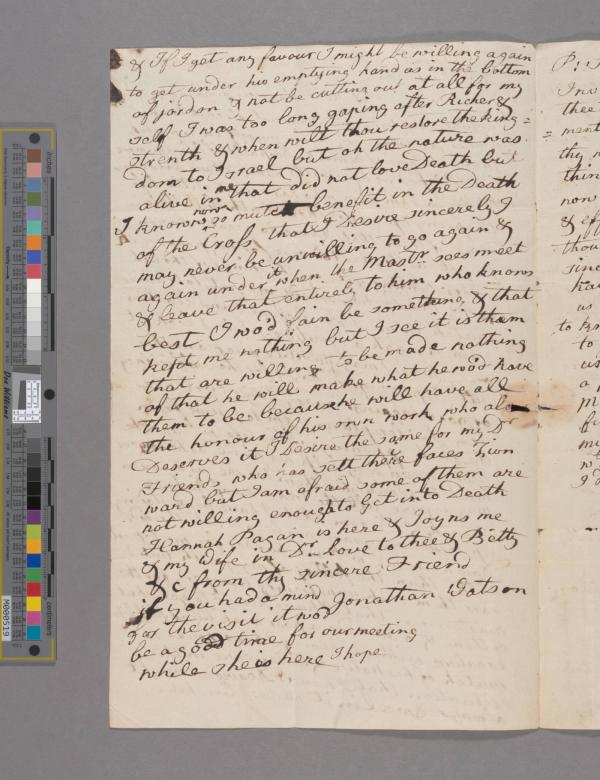 & If I get any favour I might be willing again
to get under his emptying hand as in the bottom
of jordon & not be cutting out at all for my
self I was too long gaping after Riches &
strenth & when wilt thou restore the king=
dom to Israel but oh the nature was
alive in me that did not love Death but
I know now so mutch benefit in the Death
of the Cross that I Desire sincerely I
may never be unwilling to go again &
again under it when the Mastr sees meet
& leave that entirely to him who knows
best I wod fain be something & that
kept me nothing but I see it is them
that are willing to be made nothing
of that he will make what he wod have
them to be because he will have all
the honour of his own work who alo
Deserves it I Desire the same for my Dr
Friends who has sett there faces Zion
ward but I am afraid some of them are
not willing enough to Get into Death
Hannah Pagan is here & Joyns me
& my Wife in Dr love to thee & Betty
& c from thy sincere Friend
Jonathan Watson
If you had a mind
for the visit it wod
be a good time for our meeting
while she is here I hope
P: S
Inv
thee
= ment
thy n
thin
now
& eff
thou
sinc
hav
us
to kn
to
us
a n
M
fr
my
w
I d
inches
centimeters
Don Williams
M000519